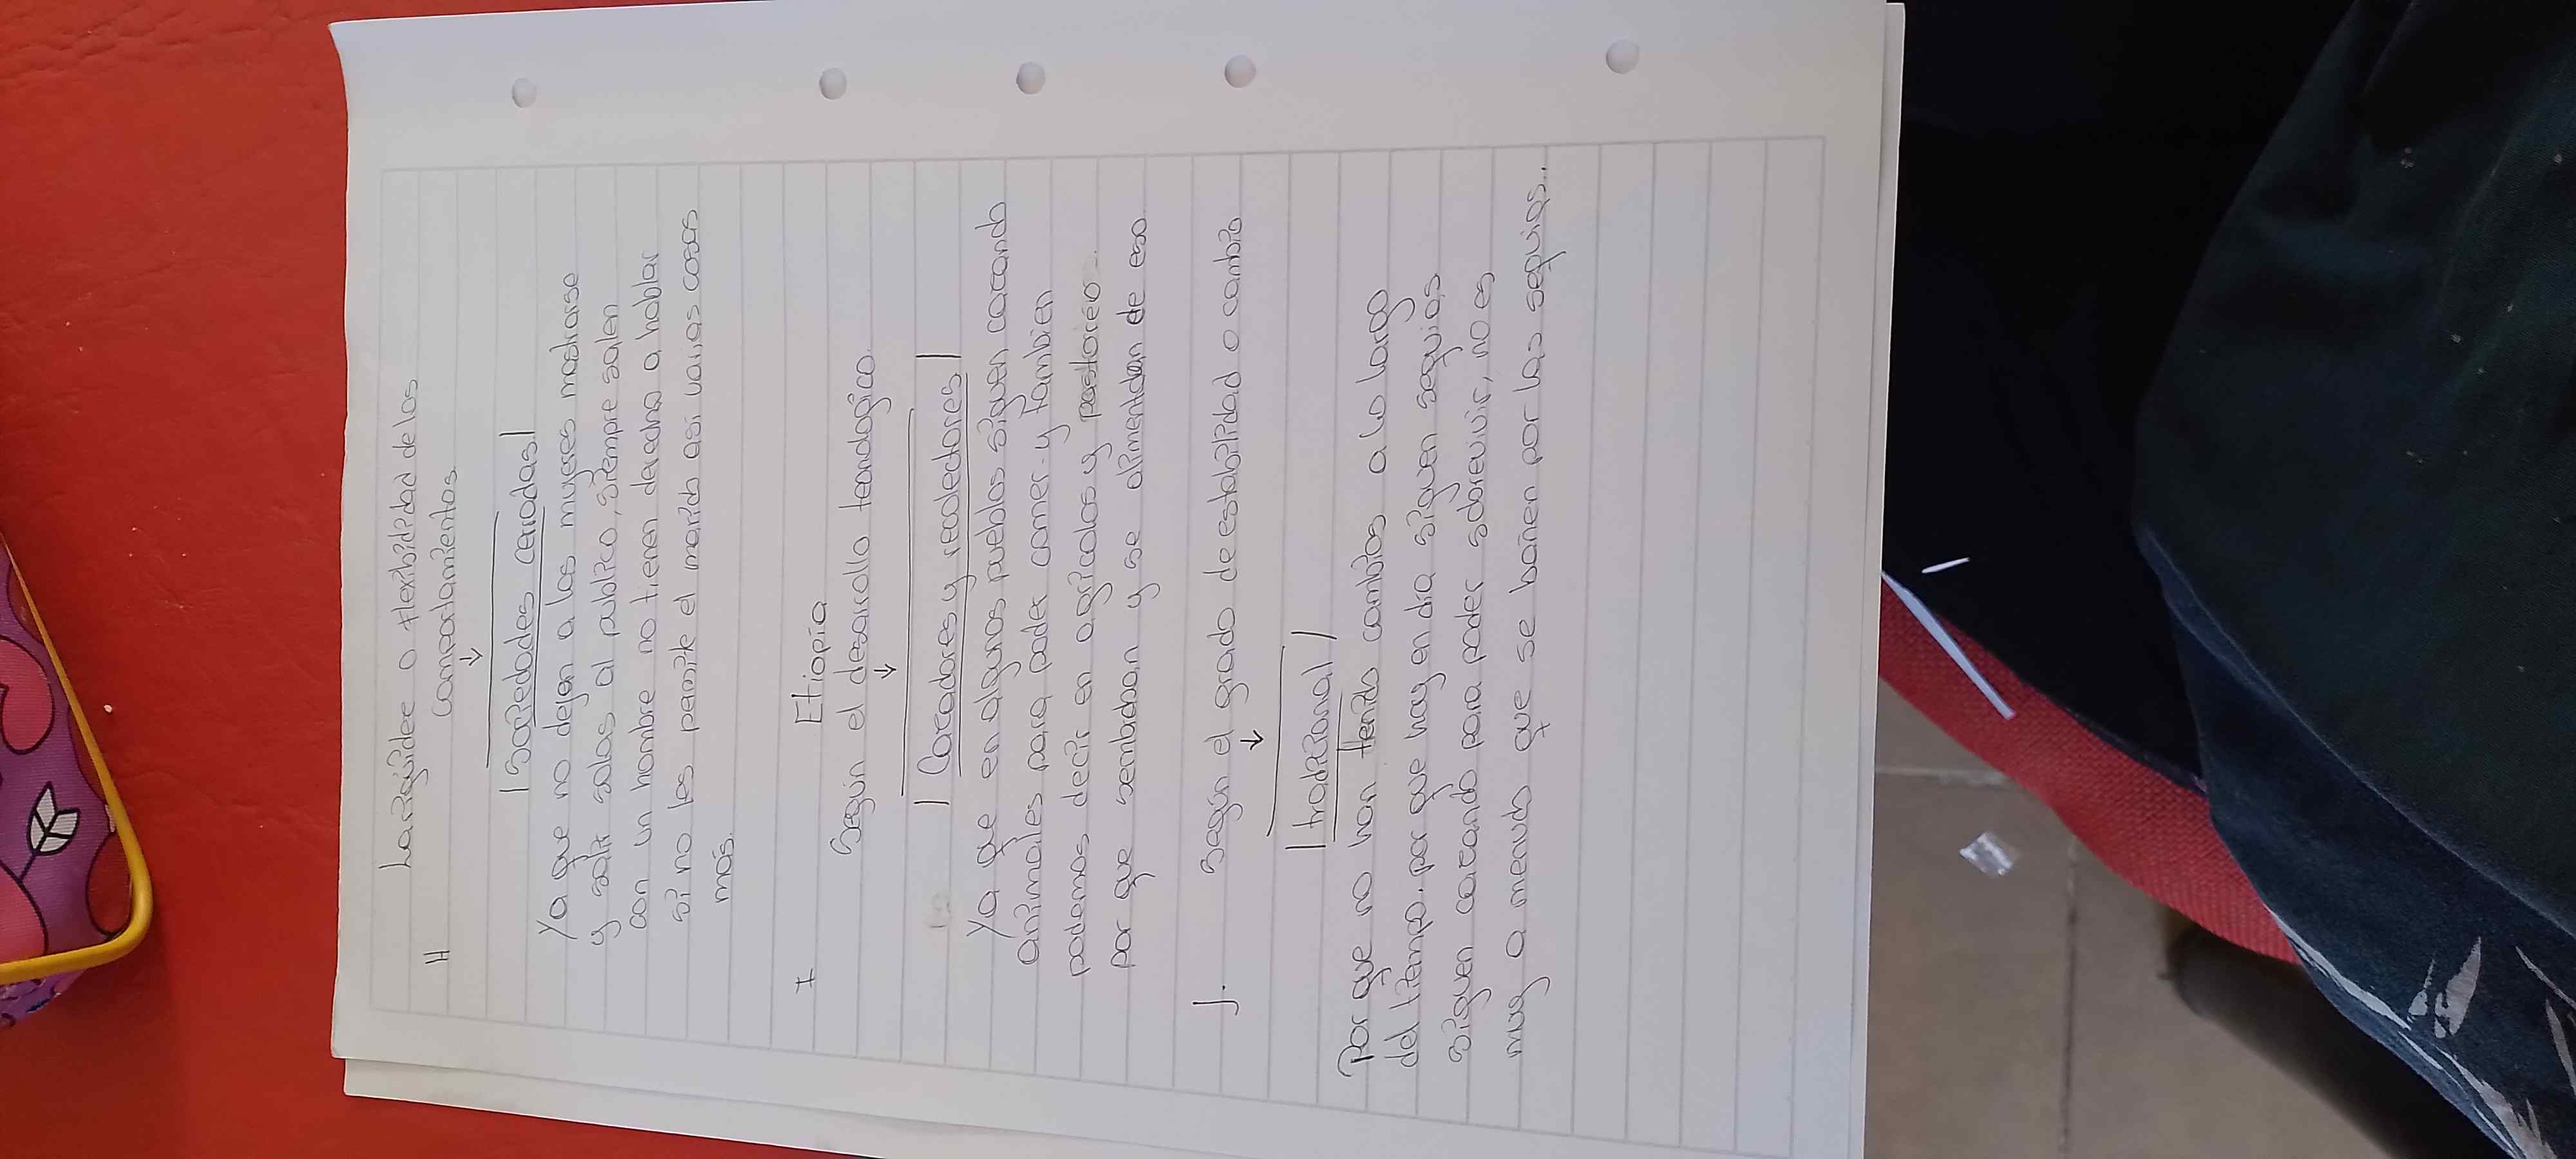 La rigidez o flexibilidad de los
H comportamientos.
↓
| Sociedades cerradas |
Ya que no dejan a las mujeres mostrarse
y salir solas al publico, siempre salen
con un hombre no tienen derecho a hablar
si no les permite el marido asi varias cosas
más.
I Etiopía
Según el desarrollo tecnológico.
↓
| Cazadores y recolectores |
Ya que en algunos pueblos siguen cazando
animales para poder comer y tambien
podemos decir en agricolas y pastoreo.
por que sembraban y se alimentan de eso
J. Según el grado de estabilidad o cambio
↓
| tradicional |
Por que no han tenido cambios a lo largo
del tiempo. por que hoy en dia siguen sequias
siguen cazando para poder sobrevivir, no es
muy a menudo que se bañen por las sequias..